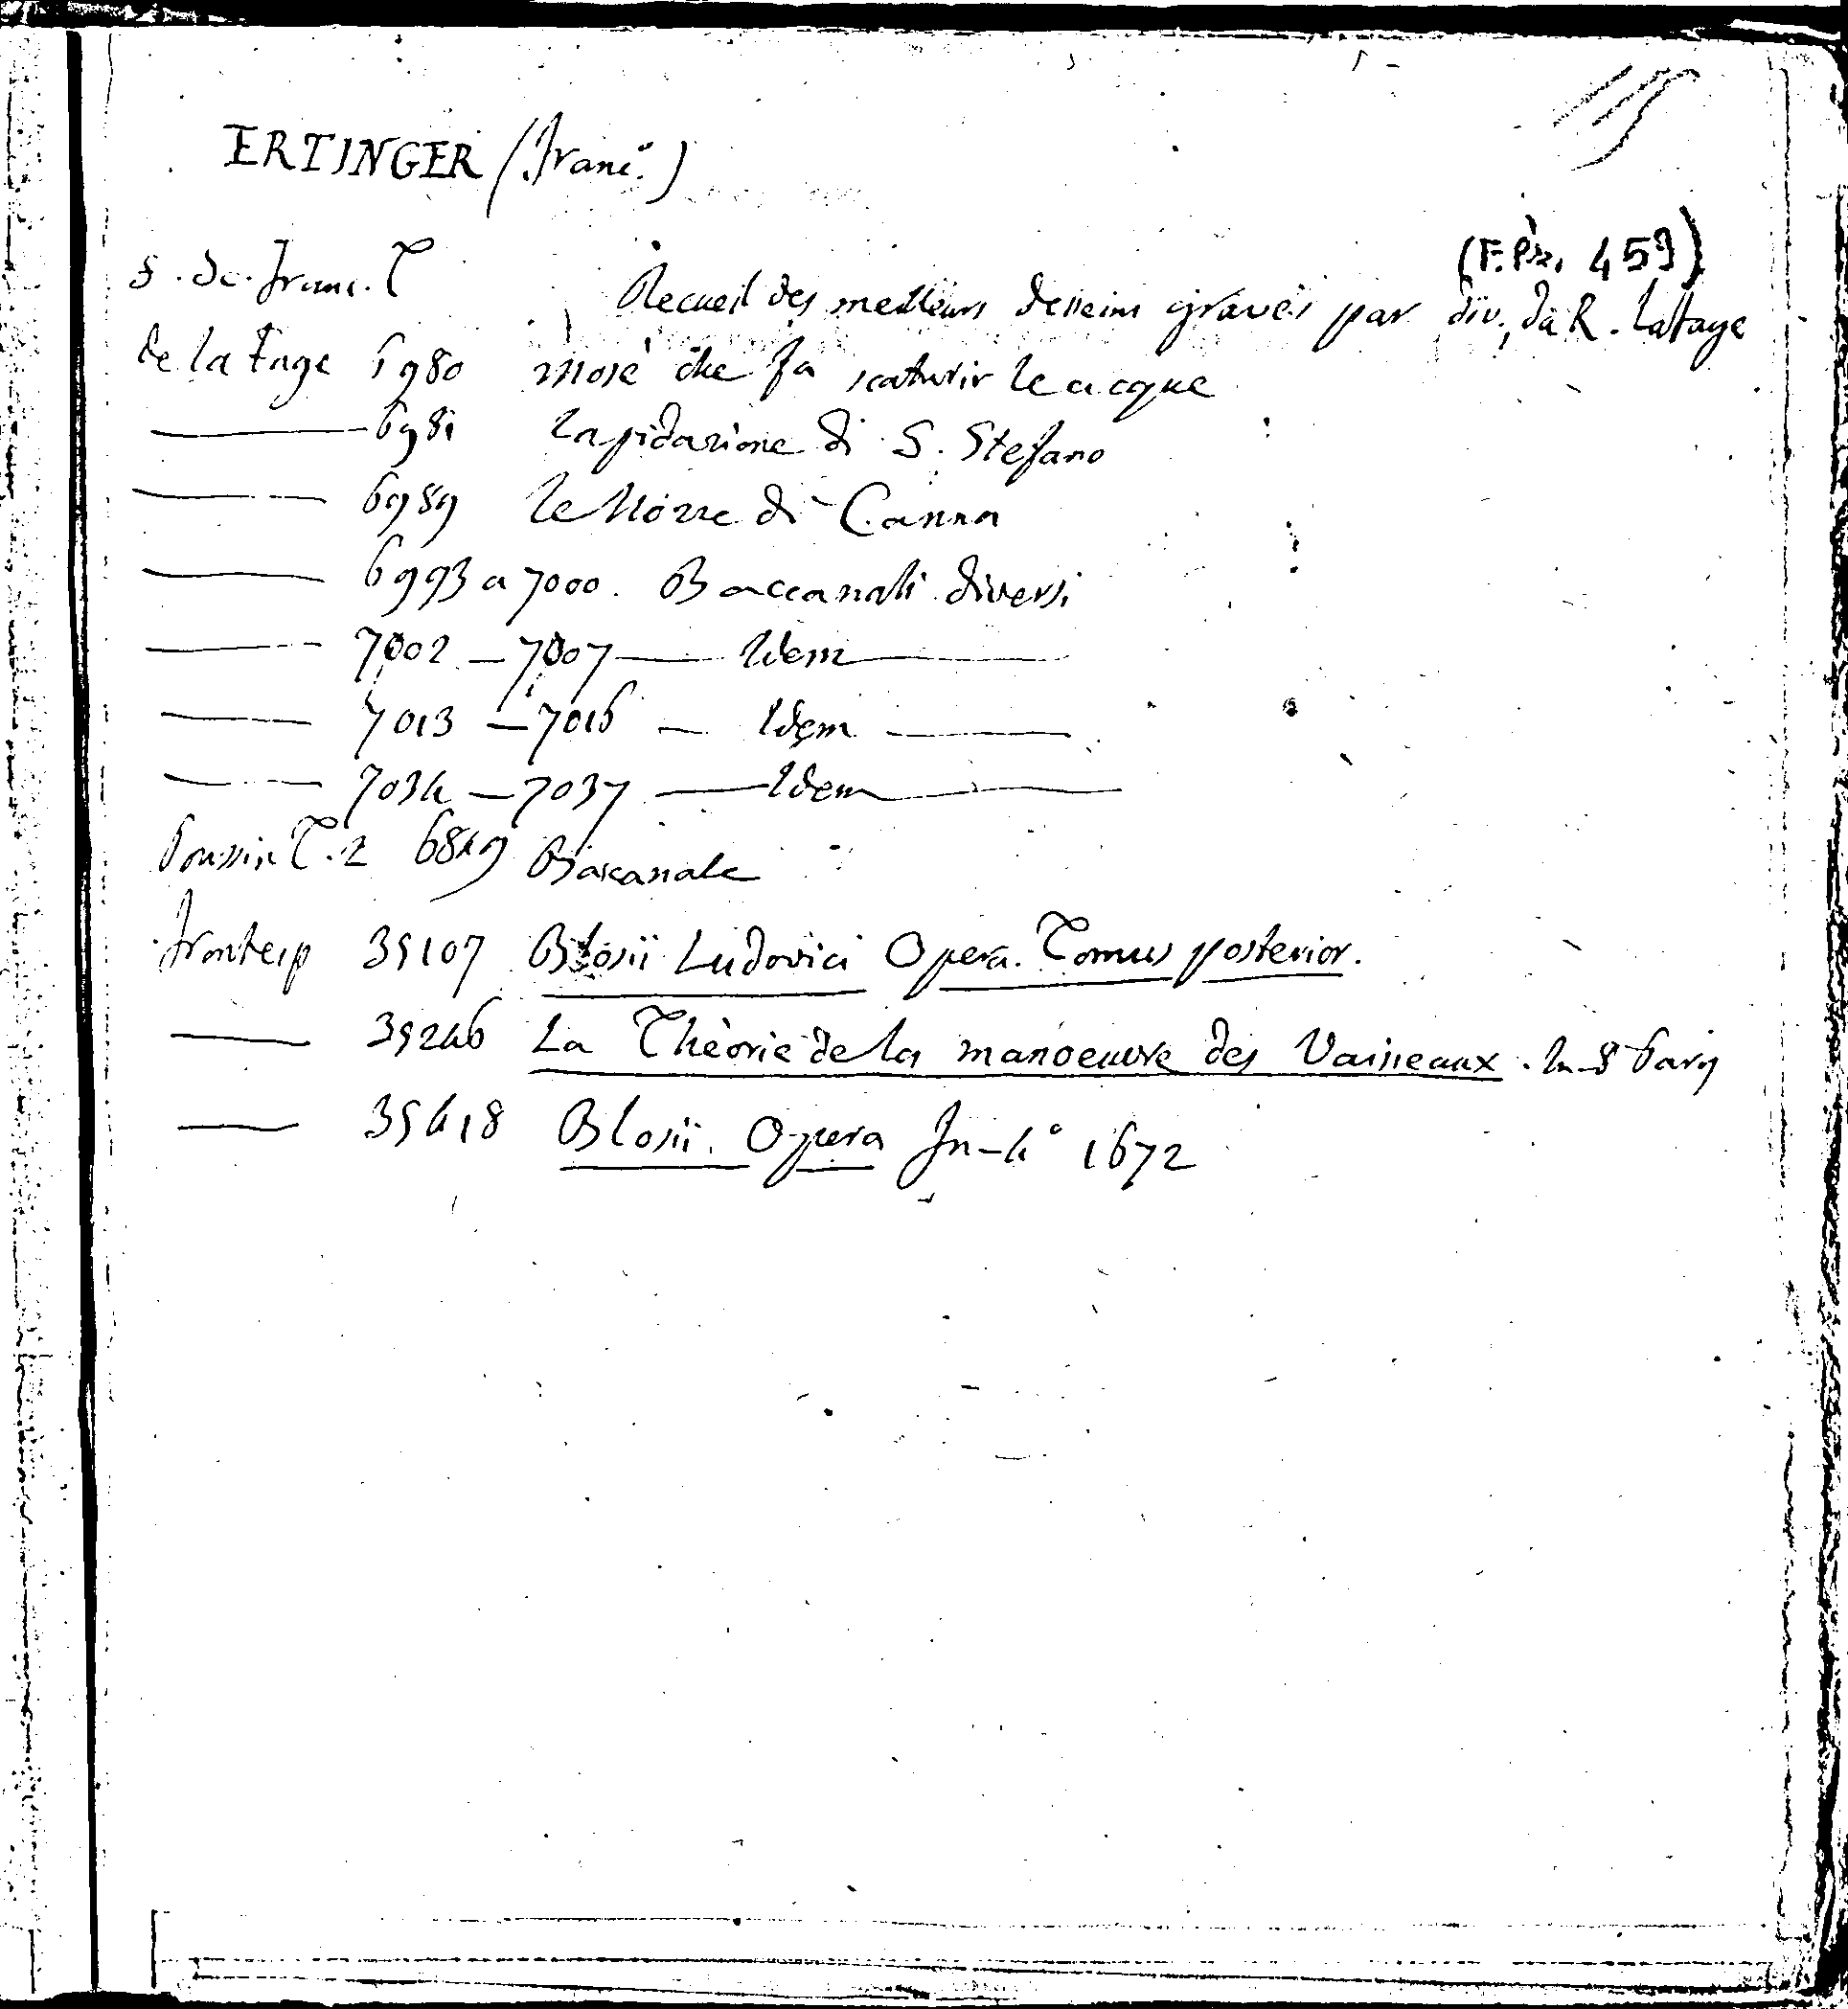 115
ERTINGER (Franc.º)
(F. Pn. 459)
S. de. franc. T Recueil des meilleurs desseins gravés par div, da R. Laffage
de la Fage 6980 Mosè che fa scaturir le acque
—— 6981 Lapidazione di S. Stefano
—— 6989 Le Nozze di Canna
—— 6993 a 7000. Baccanali diversi
—— 7002 — 7007 — Idem ——
—— 7013 — 7016 — Idem ——
—— 7034 — 7037 — Idem ——
Poussin T. 2 6849 Baccanale
frontesp 35107 Blosii Ludovici Opera. Tomus posterior.
—— 35246 La Théorie de la manoeuvre des Vaisseaux. In-8 Paris
—— 35418 Blosii. Opera In-4° 1672